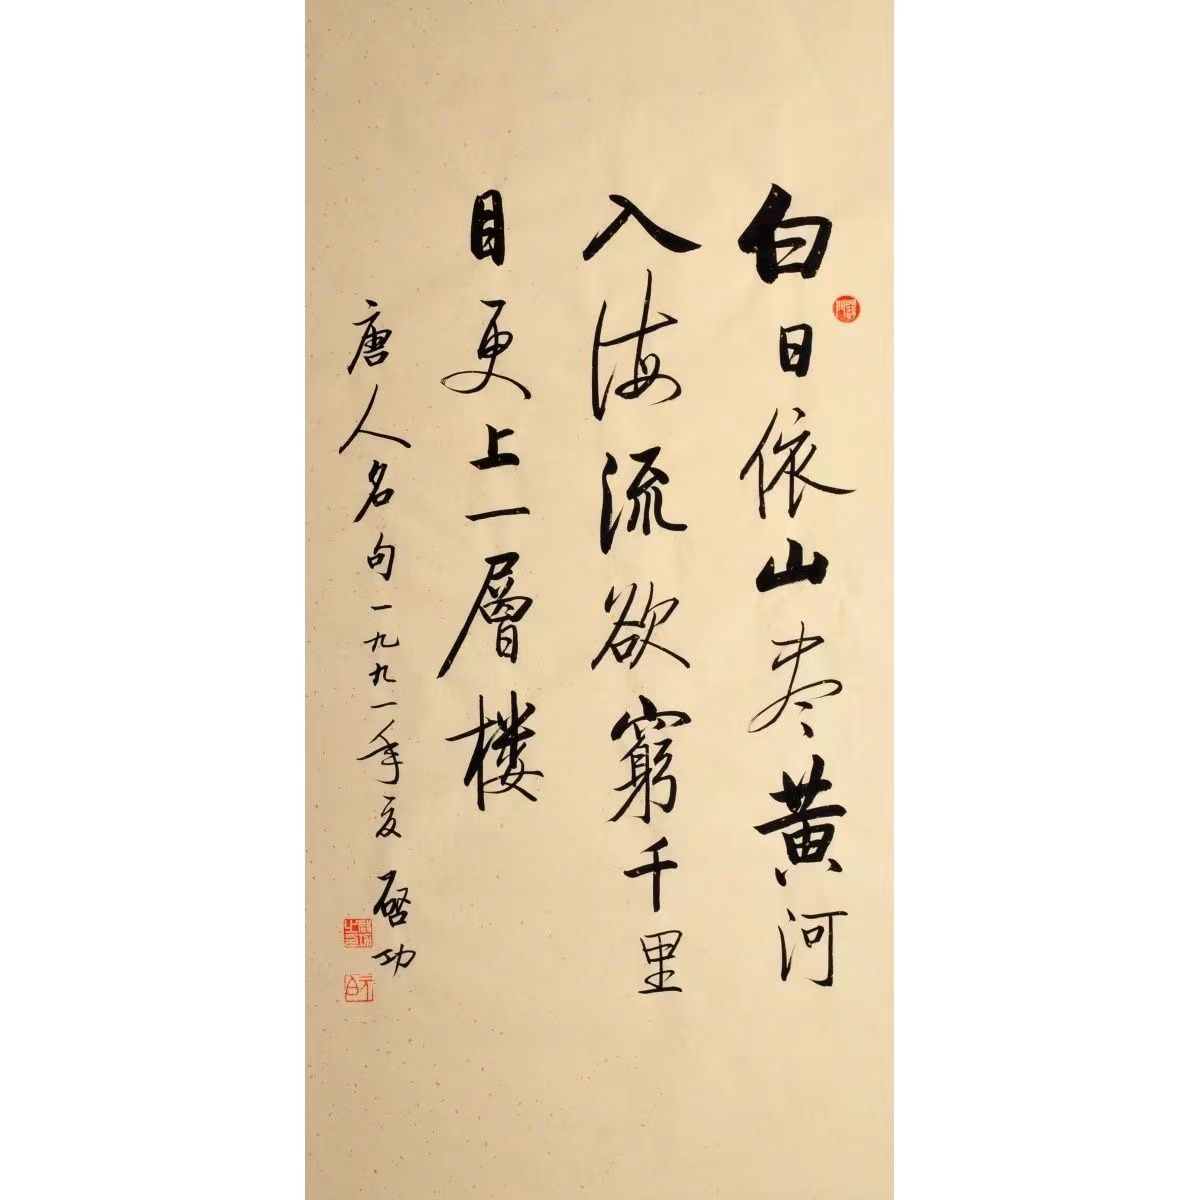 白日依山尽黄河
入海流欲窮千里
目更上一層楼
唐人名句一九九一年夏啓功